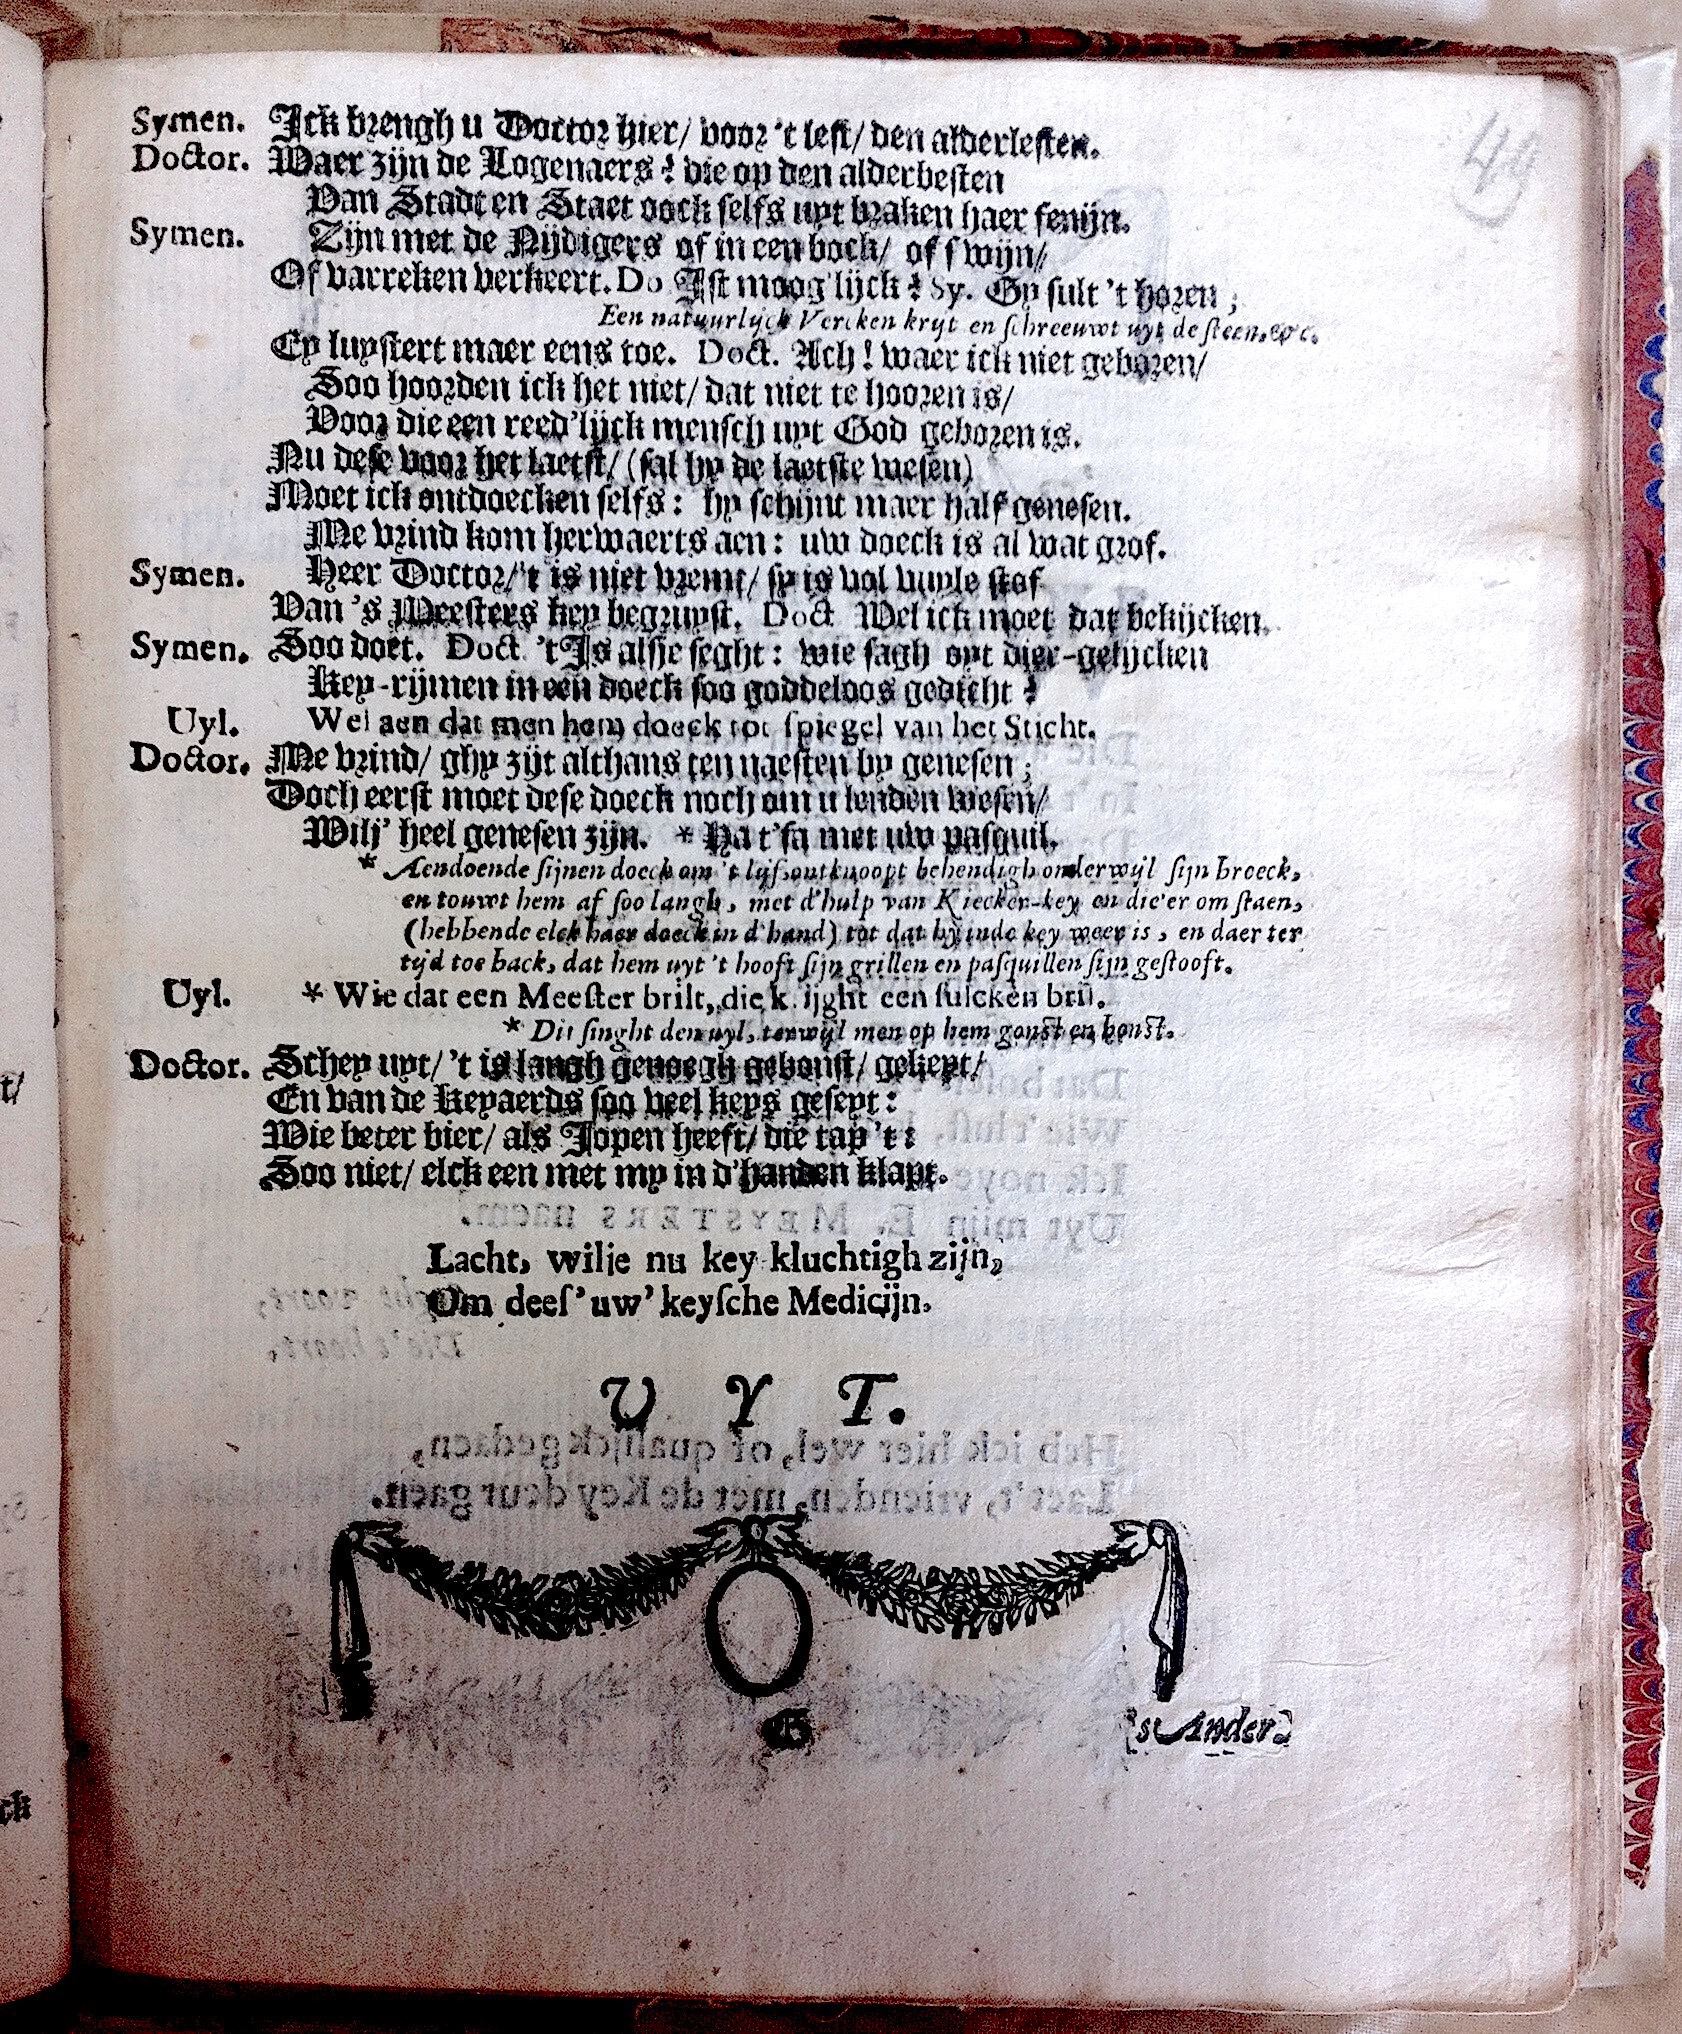 49
Symen. Ick brengh u Doctor hier/ voor 't lest/ den alderlesten.
Doctor. Waer zijn de Logenaers? die op den alderbesten
Van Stadt en Staet oock selfs uyt braken haer fenijn.
Symen. Zijn met de Nijdigers of in een bock/ of swijn/
Of varreken verkeert. Do Ist moog'lijck? Sy. Gy sult 't horen;
Een natuurlijck Vercken kryt en schreeuwt uyt de steen, &c.
Ey luystert maer eens toe. Doct. Ach! waer ick niet geboren/
Soo hoorden ick het niet/ dat niet te hooren is/
Voor die een reed'lijck mensch uyt God geboren is.
Nu dese voor het laetst/ (sal hy de laetste wesen)
Moet ick ontdoecken selfs: hy schijnt maer half genesen.
Me vrind kom herwaerts aen: uw doeck is al wat grof.
Symen. Heer Doctor/ 't is niet vremt/ sy is vol vuyle stof
Van 's Meesters key begruyst. Doct Wel ick moet dat bekijcken.
Symen. Soo doet. Doct. 't Is alsje seght: wie sagh oyt dier-gelijcken
Key-rijmen in een doeck soo goddeloos gedicht?
Uyl. Wel aen dat men hem doeck tot spiegel van het Sticht.
Doctor. Me vrind/ ghy zijt althans ten naesten by genesen;
Doch eerst moet dese doeck noch om u lenden wesen/
Wilj' heel genesen zijn. * Ha t'sa met uw pasquil.
* Aendoende sijnen doeck om 't lijf, ontknoopt behendigh onderwijl sijn broeck,
en touwt hem af soo langh, met d'hulp van Kiecker-key en die'er om staen,
(hebbende elck haer doeck in d'hand) tot dat hy inde key weer is, en daer ter
tijd toe back, dat hem uyt 't hooft sijn grillen en pasquillen sijn gestooft.
Uyl. * Wie dat een Meester brilt, die krijght een sulcken bril.
* Dit singht den uyl, terwijl men op hem gonst en bonst.
Doctor. Schey uyt/ 't is langh genoegh gebonst/ gekeyt/
En van de Keyaerds soo veel keys geseyt:
Wie beter bier/ als Jopen heeft/ die tap't:
Soo niet/ elck een met my in d'handen klapt.
Lacht, wilje nu key-kluchtigh zijn,
Om dees' uw' keysche Medicijn.
UYT.
G
's Ander